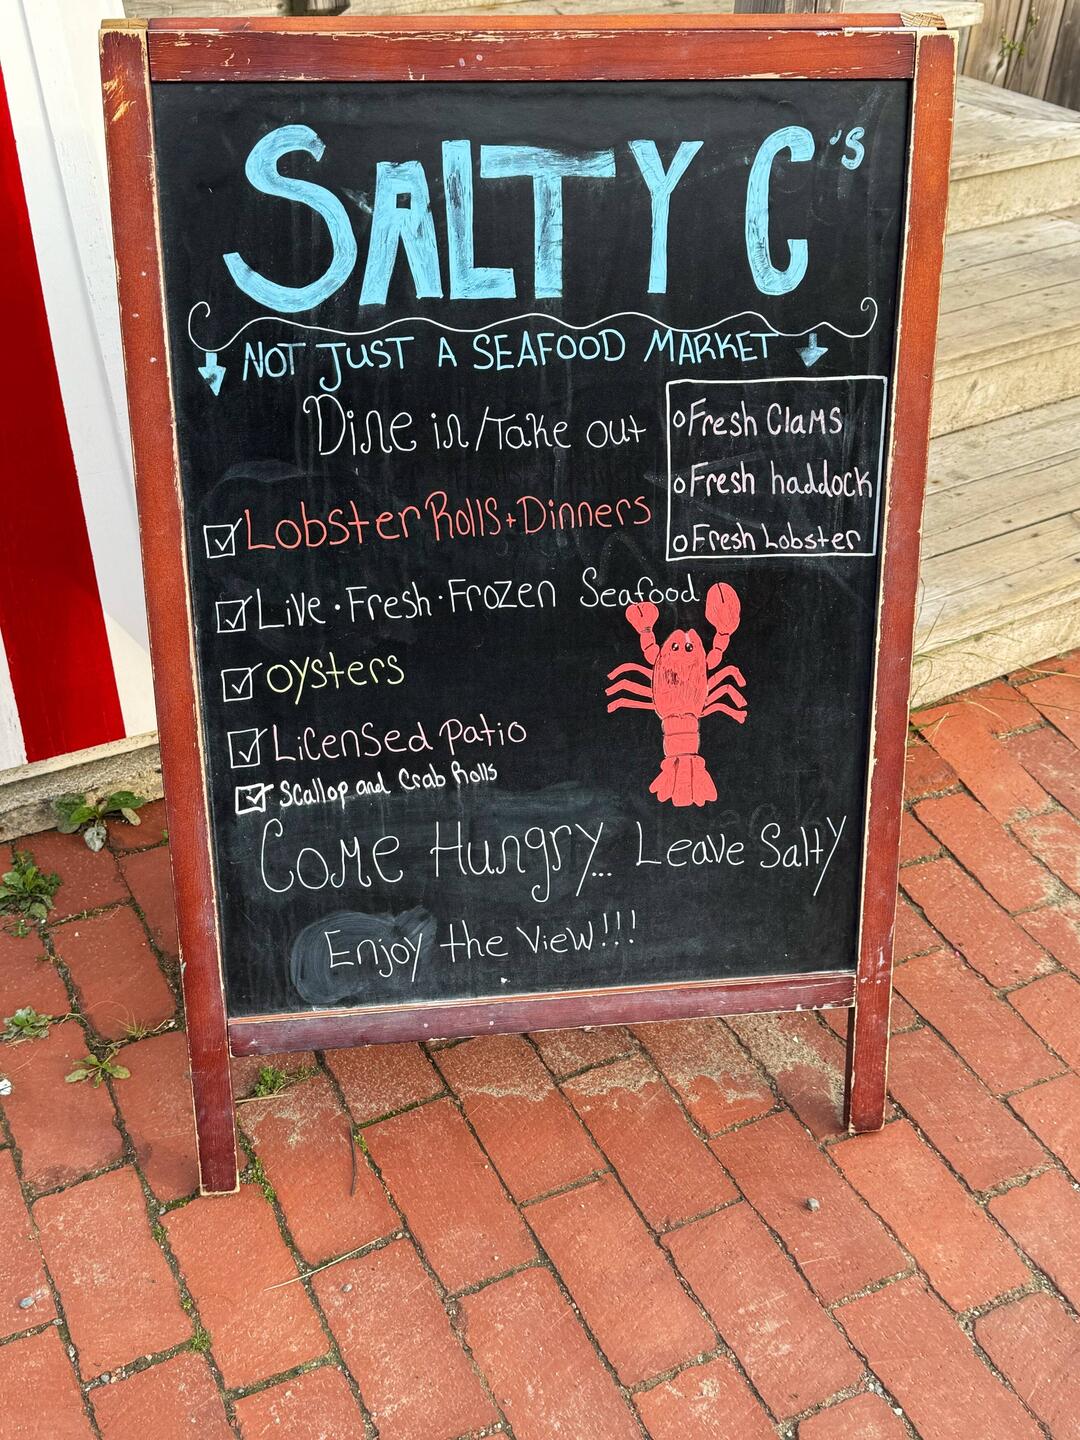 SALTY C's
NOT JUST A SEAFOOD MARKET
Dine in/Take out
o Fresh Clams
o Fresh haddock
o Fresh Lobster
Lobster Rolls + Dinners
Live · Fresh · Frozen Seafood
oysters
Licensed patio
Scallop and Crab Rolls
Come Hungry... Leave Salty
Enjoy the View!!!